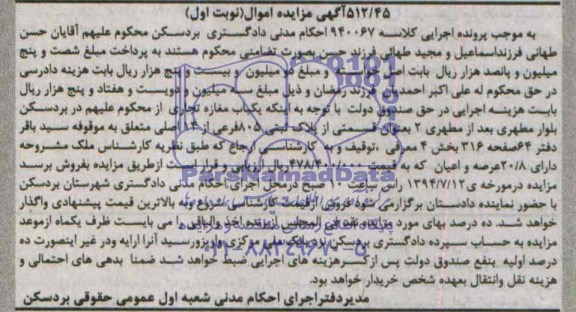 ۵۱۲/۴۵آگهی مزایده اموال(نوبت اول)
به موجب پرونده اجرایی کلاسه ۹۴۰۰۶۷ احکام مدنی دادگستری بردسکن محکوم علیهم آقایان حسن
طهانی فرزنداسماعیل و مجید طهانی فرزند حسن بصورت تضامنی محکوم هستند به پرداخت مبلغ شصت و پنج
میلیون و پانصد هزار ریال بابت اصل و مبلغ دو میلیون و بیست و پنج هزار ریال بابت هزینه دادرسی
در حق محکوم له علی اکبر احمدیان فرزند رمضان و ذیل مبلغ سه میلیون و دویست و هفتاد و پنج هزار ریال
بابت هزینه اجرایی در حق صندوق دولت با توجه به اینکه یکباب مغازه تجاری از محکوم علیهم در بردسکن
بلوار مطهری بعد از مطهری ۲ بعنوان قسمتی از پلاک ثبتی ۸۰۵فرعی از اصلی متعلق به موقوفه سید باقر
دفتر ۶۴صفحه ۳۱۶ بخش ۴ معرفی ،توقیف و به کارشناسی ارجاع که طبق نظریه کارشناس ملک مشروحه
دارای ۳۰/۸عرصه و اعیان که به قیمت ۴۷۸/۴۰۰/۰۰۰ریال ارزیابی و قرار است ازطریق مزایده بفروش برسد
مزایده درمورخه ی۱۳۹۴/۷/۱۲ راس ساعت ۱۰ صبح درمحل اجرای احکام مدنی دادگستری شهرستان بردسکن
با حضور نماینده دادستان برگزاری شود فروش ازقیمت کارشناسی شروع و به بالاترین قیمت پیشنهادی واگذار
خواهد شد. ده درصد بهای مورد مزایده نقد فی المجلس از برنده اخذ والباقی را می بایست ظرف یکماه ازموعد
مزایده به حساب سپرده دادگستری بردسکن نزد بانک ملی مرکزی واریزورسید آنرا ارایه ودر غیر اینصورت ده
درصد اولیه بنفع صندوق دولت پس ازکسرهزینه های اجرایی ضبط خواهد شد ضمنا بدهی های احتمالی و
هزینه نقل وانتقال بعهده شخص خریدار خواهد بود.
مدیردفتراجرای احکام مدنی شعبه اول عمومی حقوقی بردسکن
ParsNamadData